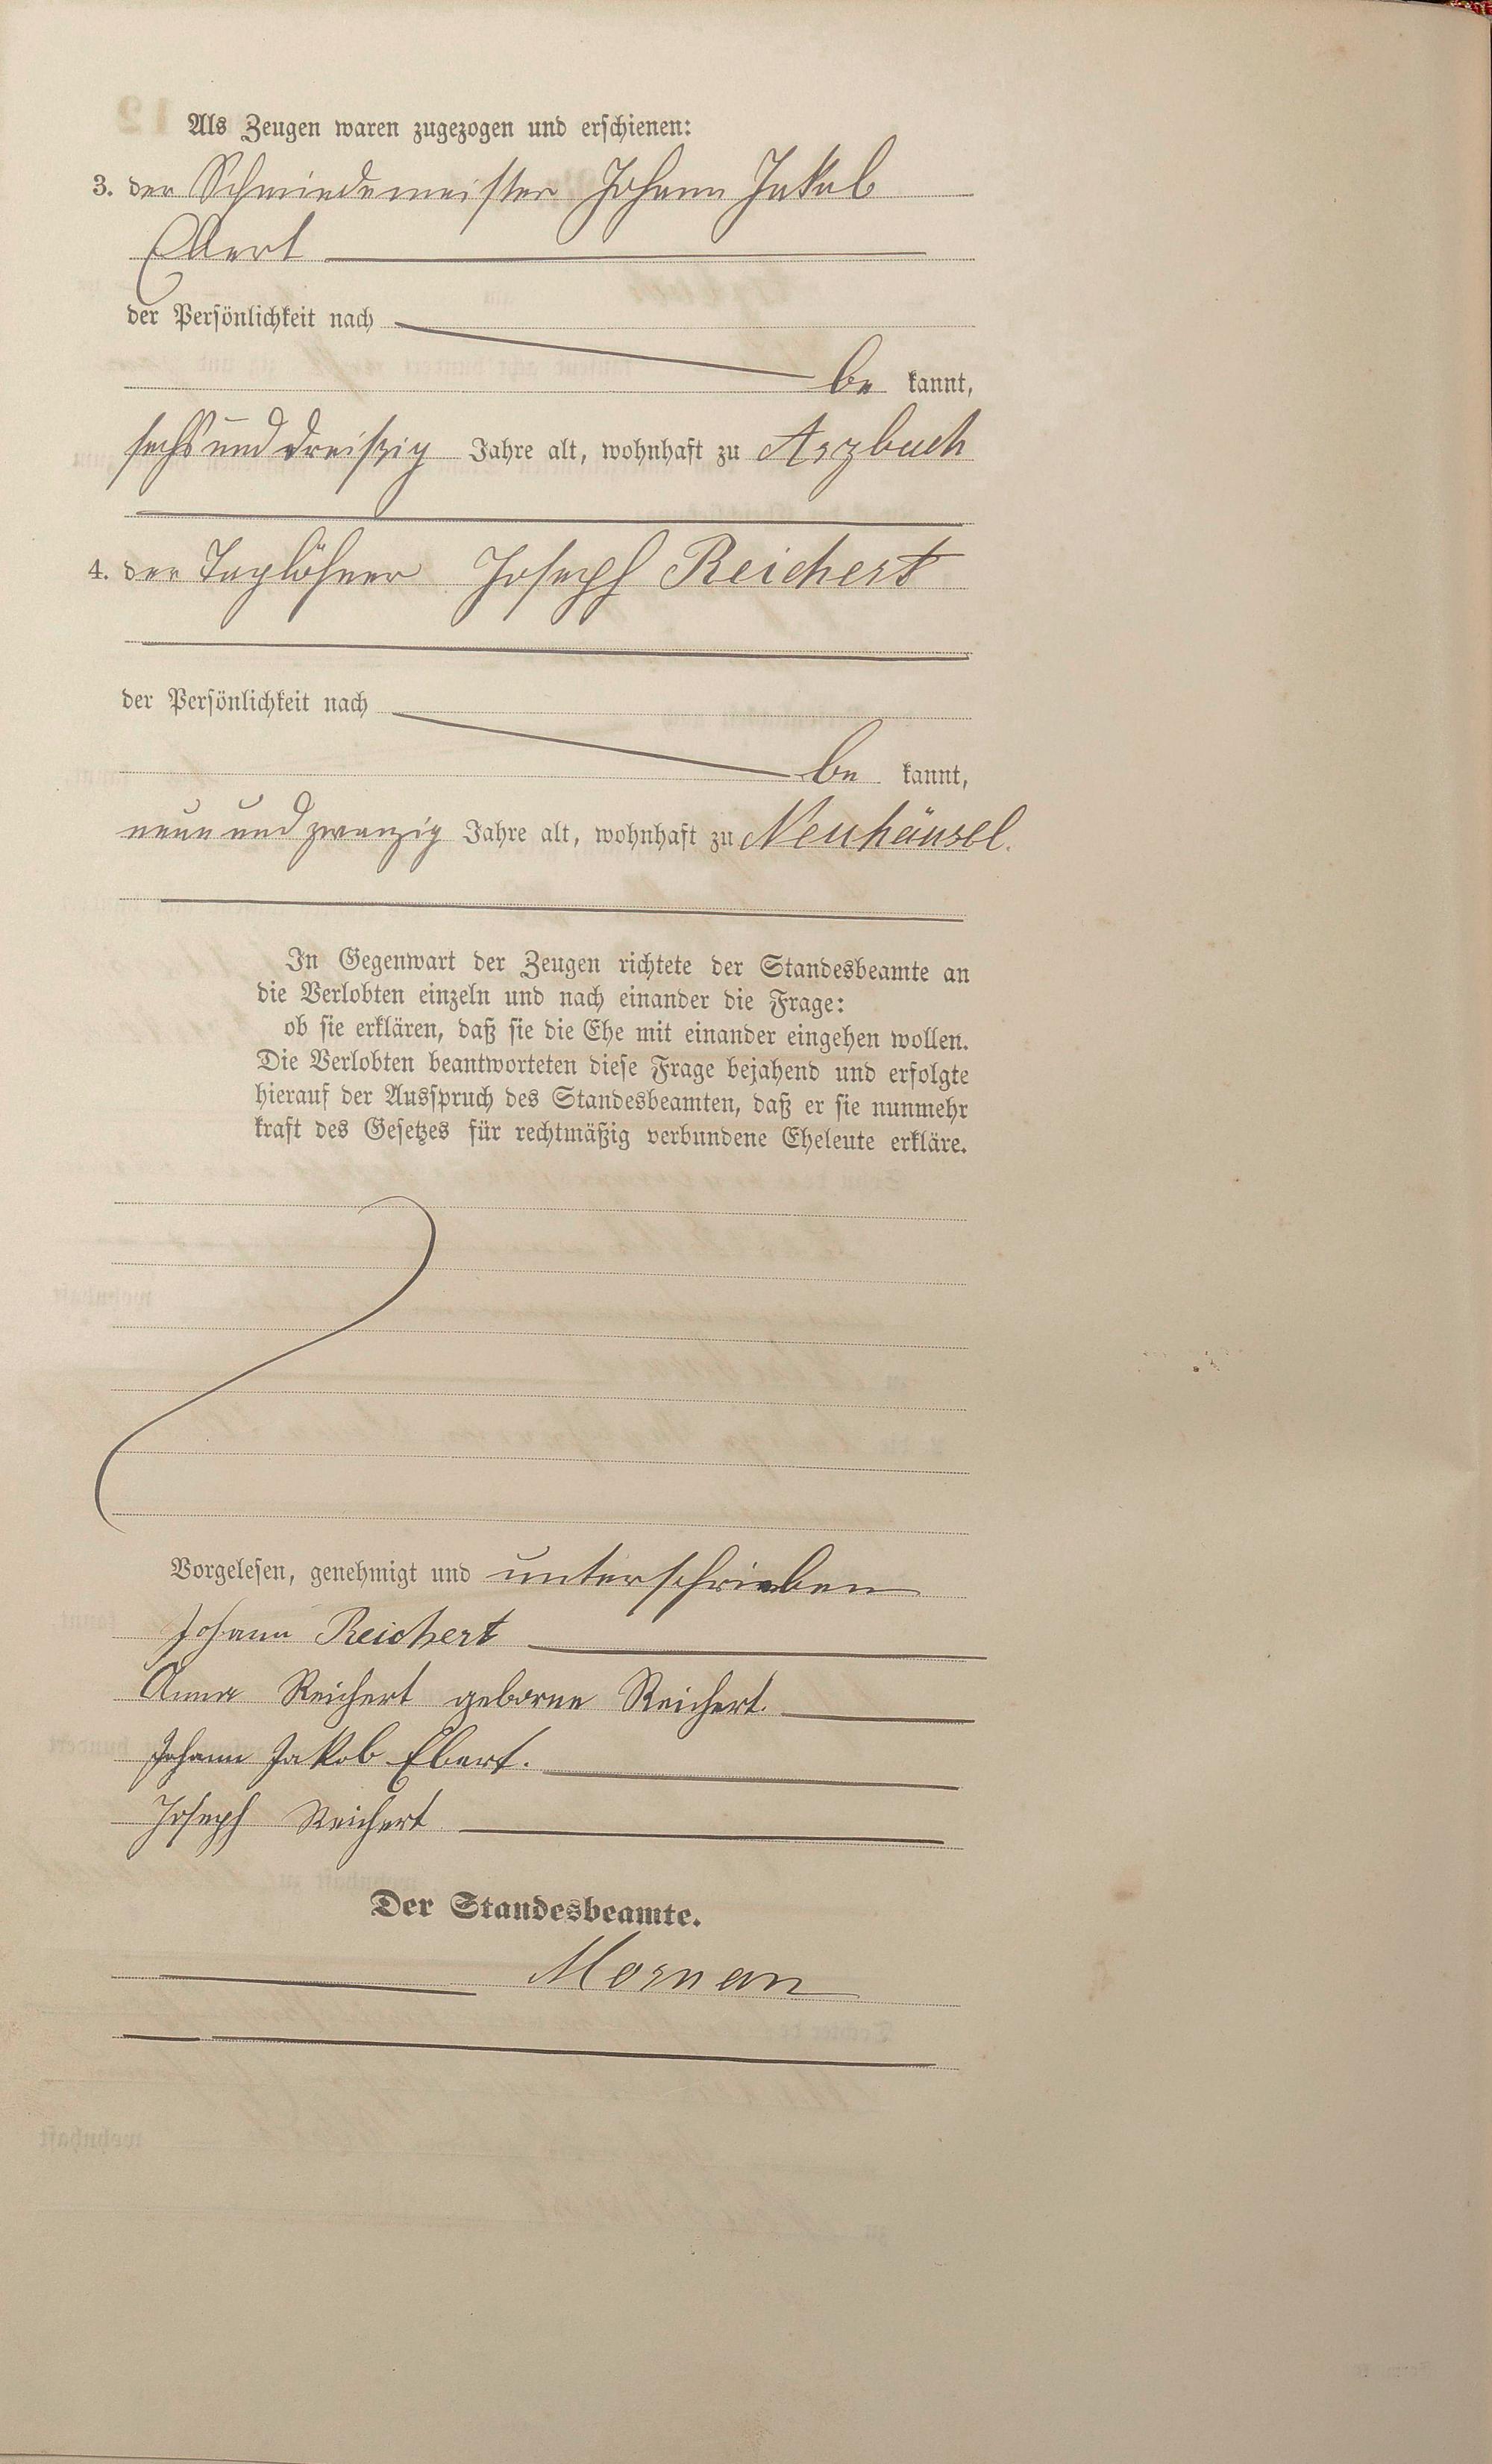 Als Zeugen waren zugezogen und erschienen:
3. der Schmiedemeister Johann Jakob
Ebert
der Persönlichkeit nach
be kannt,
sechs und dreißig Jahre alt, wohnhaft zu Arzbach
4. der Taglöhner Joseph Reichert
der Persönlichkeit nach
be kannt,
neun und zwanzig Jahre alt, wohnhaft zu Neuhäusel.
In Gegenwart der Zeugen richtete der Standesbeamte an
die Verlobten einzeln und nach einander die Frage:
ob sie erklären, daß sie die Ehe mit einander eingehen wollen.
Die Verlobten beantworteten diese Frage bejahend und erfolgte
hierauf der Ausspruch des Standesbeamten, daß er sie nunmehr
kraft des Gesetzes für rechtmäßig verbundene Eheleute erkläre.
Vorgelesen, genehmigt und unterschrieben
Johann Reichert
Anna Reichert geborne Reichert.
Johann Jakob Ebert.
Joseph Reichert
Der Standesbeamte.